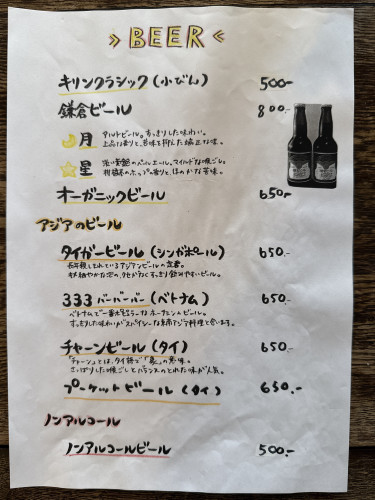 BEER
キリンクラシック(小びん) 500-
鎌倉ビール 800-
月 アルトビール。すっきりした味わい。
上品な香りと、苦味を抑えた端正な味。
星 淡い黄銅のペールエール。マイルドな喉ごし。
柑橘系のホップの香りと、ほのかな苦味。
オーガニックビール 650-
アジアのビール
タイガービール(シンガポール) 650.-
長年親しまれているアジアンビールの定番。
飲みやすいビール。
333 バーバーバー(ベトナム) 650.-
ベトナムで一番ポピュラーなビール。
すっきりした味わいがスパイシーな東南アジア料理と合います。
チャーンビール(タイ) 650.-
「チャーン」とは、タイ語で「象」の意味。
さっぱりした喉ごしとバランスのとれた味が人気。
プーケットビール(タイ) 650.-
ノンアルコール
ノンアルコールビール 500.-